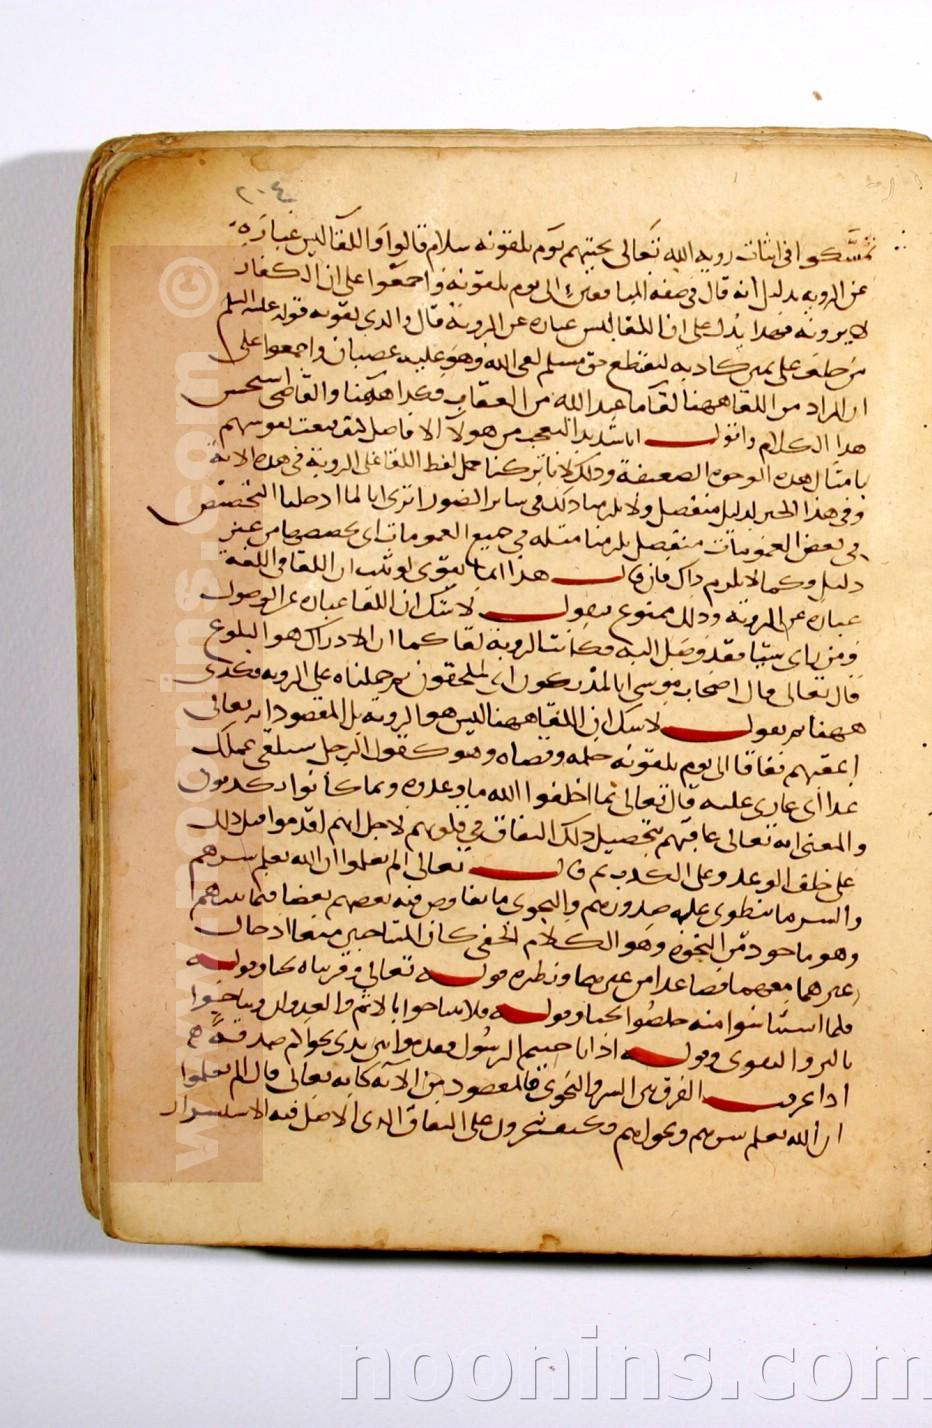 ٢٠٤
تمسكوا في اثبات رويه الله تعالى بحيتهم يوم يلقونه سلام قالوا واللقا ليس عبارة
عن الرويه بدليل انه قال في صفه المنافقين الى يوم يلقونه واجمعوا على ان الكفار
لا يرونه فهدا يدل على ان اللقا ليس عباره عن الروية قال والدى يقويه قوله عليه السلم
من حلف على يمين كاديه ليقتطع حق مسلم لقى الله وهو عليه غضبان واجمعوا على
ان المراد من اللقا ههنا لقا ما عند الله من العقاب فكدا ههنا والقاضى استحسن
هدا الكلام واقول انا شديد التعجب من هولآ الافاضل كيف قنعت نفوسهم
بامثال هده الوجوه الضعيفة ودلك لانا تركنا حمل لفظ اللقا على الروية فى هده الاية
وفى هدا الخبر لدليل منفصل ولا يلزمنا دلك في ساير الصور اترى انا لما ادخلنا التخصيص
فى بعض العمومات منفصل يلزمنا مثله في جميع العمومات اى نخصصها من غير
دليل وكما لا يلزم داك فان قال هدا انما يقوى لو ثبت ان اللقا فى اللغة
عبارة عن الروية ودلك ممنوع فنقول لا شك ان اللقا عبارة عن الوصول
ومن راى شيا فقد وصل اليه فكانت الروية لقا كما ان الادراك هو البلوغ
قال تعالى قال اصحاب موسى انا لمدركون اى لملحقون ثم حملناه على الرويه فكدى
ههنا ثم نقول لا شك ان اللقا ههنا ليس هو الروية بل المقصود انه تعالى
اعقبهم نفاقا الى يوم يلقونه حكمه وقضاه وهو كقول الرجل ستلقى عملك
غدا اى تجازى عليه قال تعالى بما اخلفوا الله ما وعدوه وبما كانوا يكدبون
والمعنى انه تعالى عاقبهم بتحصيل دلك النفاق في قلوبهم لاجل انهم اقدموا قبل دلك
على خلف الوعد وعلى الكدب ثم قال تعالى الم يعلموا ان الله يعلم سرهم
والسر ما ينطوى عليه صدورهم والنجوى ما يفاوض فيه بعضهم بعضا فيما بينهم
وهو ماخود من النجوة وهو الكلام الخفى كان المتناجيين منعا ادخال
غيرهما معهما وتباعدا من غيرهما ونظيره قوله تعالى وقربناه نجيا وقوله
فلما استياسوا منه خلصوا نجيا وقوله فلا تتناجوا بالاثم والعدوان وتناجوا
بالبر والتقوى وقوله ادا ناجيتم الرسول فقدموا بين يدى نجواكم صدقة
ادا عرفت الفرق بين السر والنجوى فالمقصود من الاية كانه تعالى قال الم يعلموا
ان الله يعلم سرهم ونجواهم فكيف يتجرون على النفاق الدى الاصل فيه الاستسرار
© www.noonins.com
noonins.com